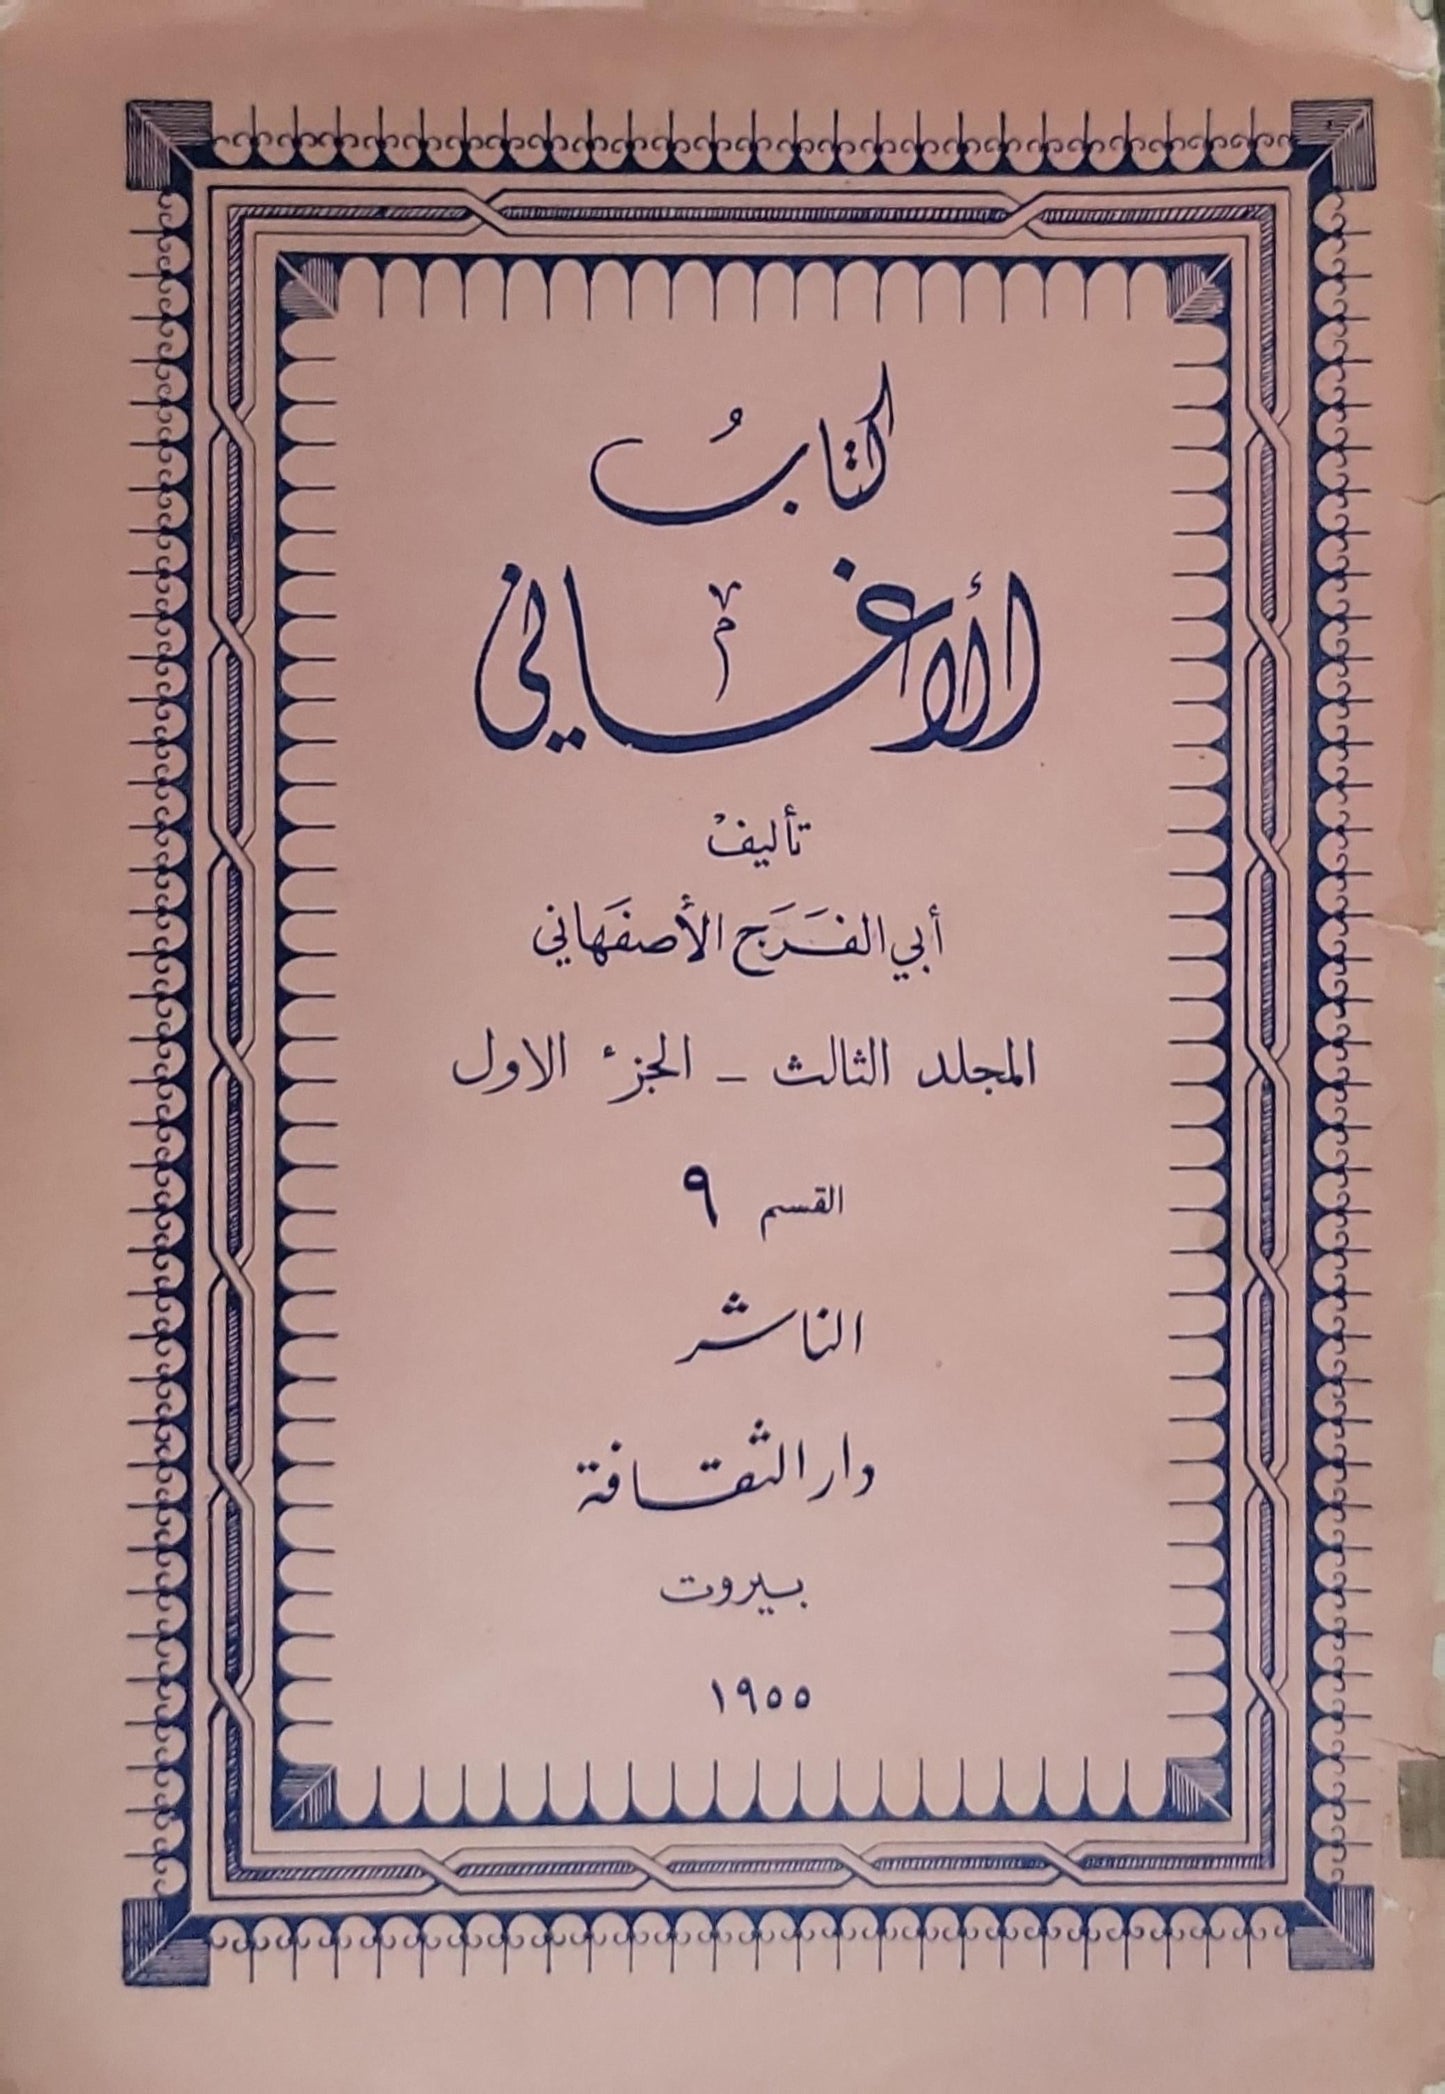 كتابُ
الأغاني
تأليفْ
أبي الفَرَج الأصفَهاني
المجلد الثالث - الجزء الاول
القسم ٩
الناشر
دار الثقافة
بيروت
١٩٥٥